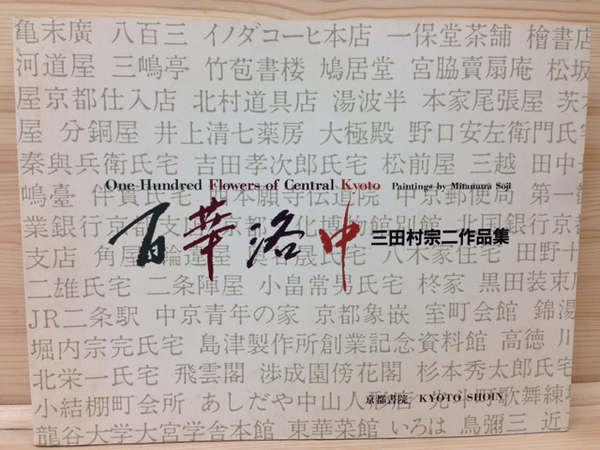 亀末廣 八百三 イノダコーヒ本店 一保堂茶舗 檜書店
河道屋 三嶋亭 竹苞書楼 鳩居堂 宮脇賣扇庵 松坂
屋京都仕入店 北村道具店 湯波半 本家尾張屋 茨木
屋 分銅屋 井上清七薬房 大極殿 野口安左衛門氏宅
秦與兵衛氏宅 吉田孝次郎氏宅 松前屋 三越 田中
One Hundred Flowers of Central Kyoto Paintings by Mitamura Soji
鳴臺 伴賀氏宅 西本願寺伝道院 中京郵便局 第一勧
百華洛中 三田村宗二作品集
業銀行京都支店 京都文化博物館別館 北国銀行京都
支店 角屋 輪違屋 八木家住宅 田野十
二雄氏宅 二条陣屋 小畠常男氏宅 柊家 黒田装束
JR二条駅 中京青年の家 京都象嵌 室町会館 錦湯
堀内宗完氏宅 島津製作所創業記念資料館 高徳 川
北栄一氏宅 飛雲閣 渉成園傍花閣 杉本秀太郎氏宅
小結棚町会所 あしだや中山人形店 先斗町歌舞練場
京都書院 KYOTO SHOIN
龍谷大学大宮学舎本館 東華菜館 いろは 鳥彌三 近